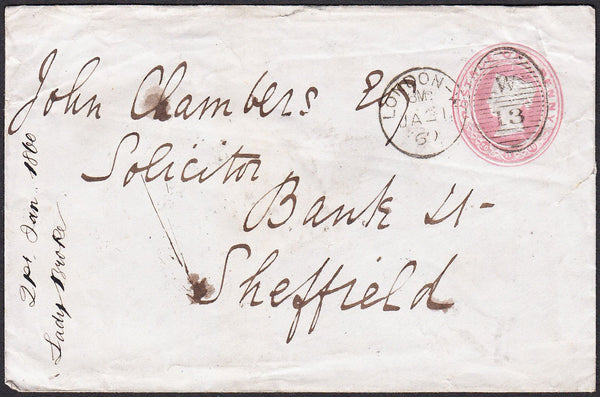 John Chambers Esq
Solicitor
Bank St
Sheffield
21st Jan. 1860
Lady Brooke
LONDON-W
JA 21
60
W
13
POSTAGE ONE PENNY